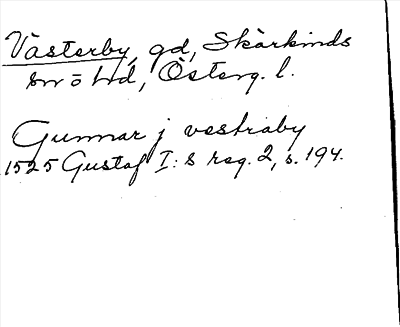 Västerby, gd, Skärkinds
sn o hd, Österg. l.
Gunnar j vestraby
1525 Gustaf I: s reg. 2, s. 194.